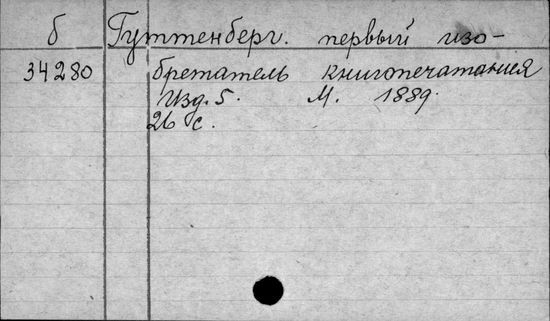 б Гуттенберг. первый изо-
34280 бретатель книгопечатания
Изд. 5. М. 1889.
26 с.